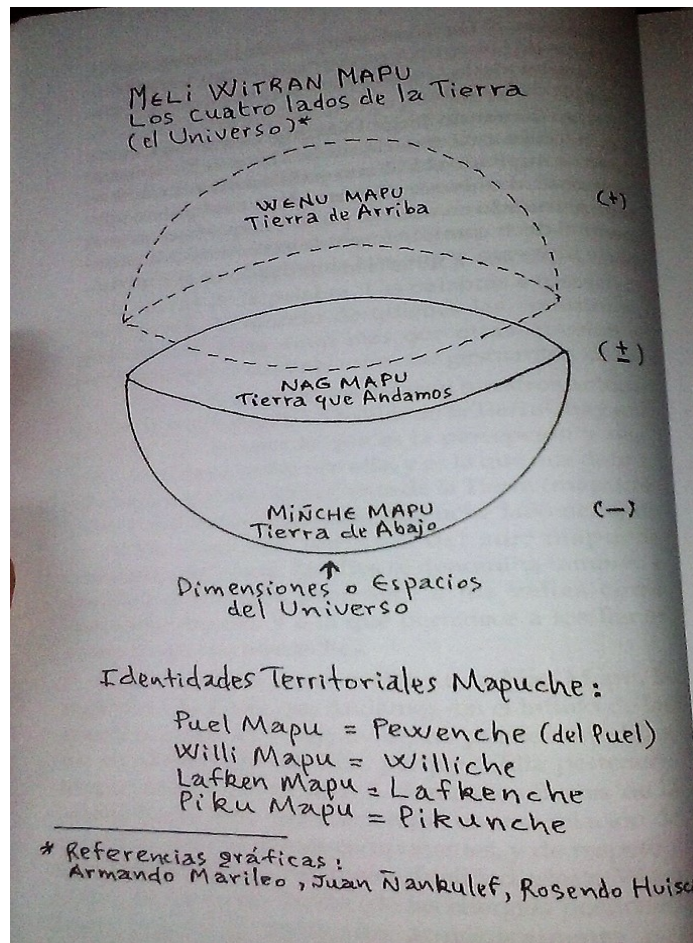 MELI WITRAN MAPU
Los cuatro lados de la Tierra
(el Universo)*
WENU MAPU
Tierra de Arriba
(+)
(±)
NAG MAPU
Tierra que Andamos
MIÑCHE MAPU
Tierra de Abajo
(−)
Dimensiones o Espacios
del Universo
Identidades Territoriales Mapuche:
Puel Mapu = Pewenche (del Puel)
Willi Mapu = Williche
Lafken Mapu = Lafkenche
Piku Mapu = Pikunche
* Referencias gráficas:
Armando Marileo, Juan Ñankulef, Rosendo